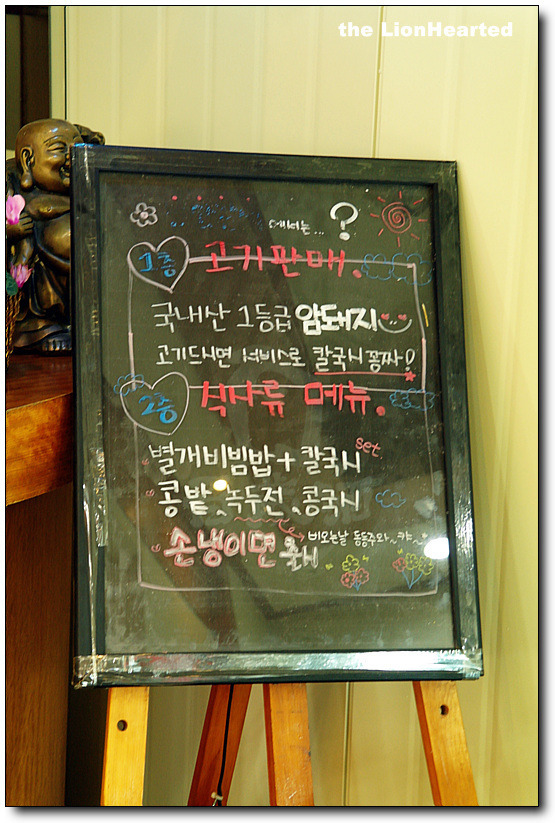 the LionHearted
에서는... ?
1층 고기판매.
국내산 1등급 암돼지
고기드시면 서비스로 칼국시 꽁짜!
2층 식사류 메뉴.
별개비빔밥 + 칼국시 set
콩밭, 녹두전, 콩국시
비오는날 동동주와..캬~
손냉이면 출시